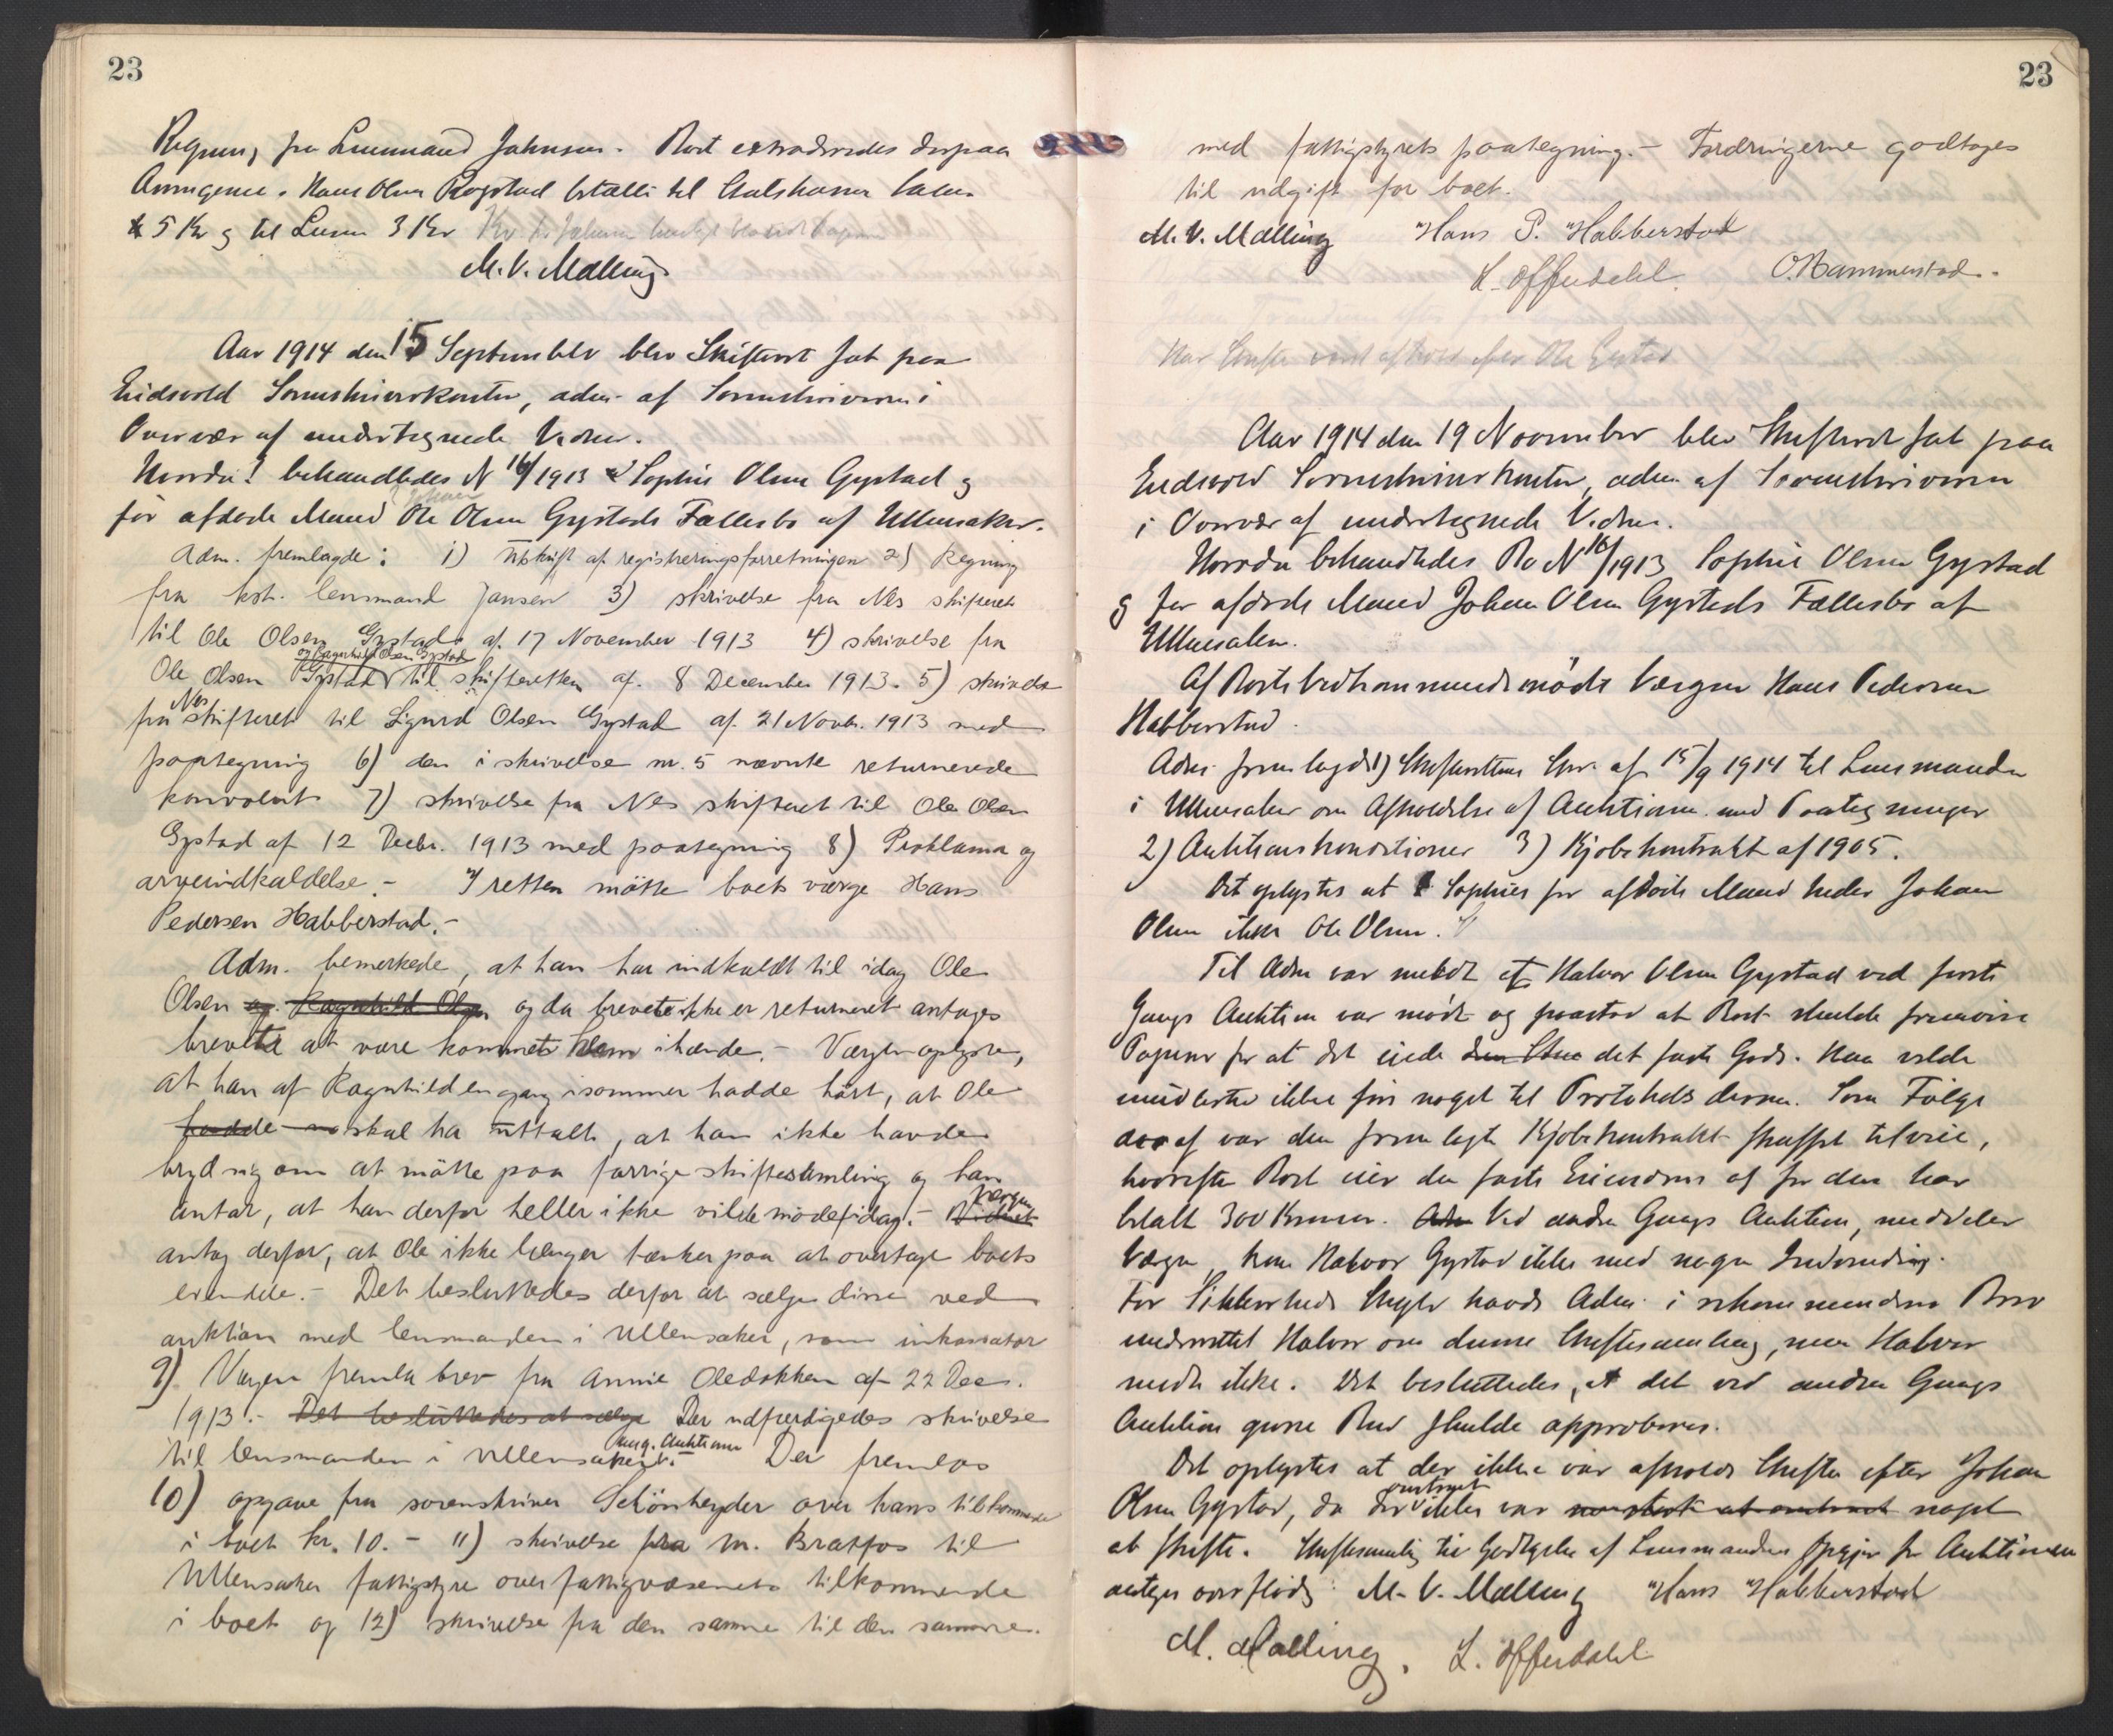 23
Regning fra Lensmand Johnsen. Boet extraderedes derpaa
Arvingerne. Hans Olsen Rogstad betalte til Statskassen
5 Kr og til Lensm 3 Kr
M.V. Mælling
Aar 1914 den 15 September blev Skifteret sat paa
Eidsvold Sorenskriverkontor, adm. af Sorenskriveren i
Overvær af undertegnede Vidner.
Hvorda: behandledes N 16/1913 Sophie Olsen Gystad og
før afdøde Mand Johan Ole Olsen Gystads Fællesbo af Ullensaker.
Adm. fremlagde: 1) Utskrift af registreringsforretningen 2) Regning
fra kst. lensmand Jansen 3) skrivelse fra Nes skifteret
til Ole Olsen Gystad af 17 November 1913 4) skrivelse fra
og Ragnhild Olsen Gystad
Ole Olsen Gystad til skifteretten af 8 December 1913. 5) skrivelse
fra Nes skifteret til Sigurd Olsen Gystad af 21 Novbr. 1913 med
paategning 6) den i skrivelse nr. 5 nævnte returnerede
konvolut 7) skrivelse fra Nes skifteret til Ole Olsen
Gystad af 12 Decbr. 1913 med paategning 8) Proklama og
arveindkaldelse. - I retten møtte boets værge Hans
Pedersen Habberstad. -
Adm. bemerkede, at han har indkaldt til idag Ole
Olsen og Ragnhild Olsen og da brevet ikke er returneret antages
brevet at være kommet ham ihænde. - Værgen oplyste,
at han af Ragnhild engang isommer hadde hørt, at Ole
hadde skal ha uttalt, at han ikke havde
bryd sig om at møtte paa forrige skiftesamling og han
antar, at han derfor heller ikke vilde møde idag. - Vidnet Værgen
antog derfor, at Ole ikke længer tænker paa at overtage boets
eiendele. - Det besluttedes derfor at sælge disse ved
auktion med lensmanden i Ullensaker, som inkassator
9) Værgen fremla brev fra Annie Oledokken af 22 Dec.
1913. - Det besluttedes at sælge Der udfærdigedes skrivelse
til lensmanden i Ullensaker ang. Auktionen. - Der fremlas
10) opgave fra sorenskriver Schönheyder over hans tilkommende
i boet kr. 10. - 11) skrivelse fra M. Bratfos til
Ullensaker fattigstyre over fattigvæsenets tilkommende
i boet og 12) skrivelse fra den samme til den samme.
23
med fattigstyrets paategning. - Fordringerne godtoges
til udgift for boet.
M.V. Mælling Hans P. Habberstad
L. Offerdahl. O. Hammerstad.
Har Skifte været afholdt efter Ole Gystad
Aar 1914 den 19 November blev Skifteret sat paa
Eidsvold Sorenskriverkontor, adm. af Sorenskriveren
i Overvær af undertegnede Vidner.
Hvorda behandledes Bo N 16/1913 Sophie Olsen Gystad
og før afdøde Mand Johan Olsen Gystads Fællesbo af
Ullensaker.
Af Boets Vedkommende mødte Værgen Hans Pedersen
Habberstad.
Adm. fremlagde 1) Skifterettens Skr. af 15/9 1914 til Lensmanden
i Ullensaker om Afholdelse af Auktionen med Paategninger
2) Auktionskonditioner 3) Kjøbekontrakt af 1905.
Det oplystes at Sophies før afdøde Mand heder Johan
Olsen ikke Ole Olsen.
Til Adm var meldt at Halvor Olsen Gystad ved første
Gangs Auktion var mødt og paastod at Boet skulde fremvise
Papirer for at det eiede det faste Gods. Han vilde
imidlertid ikke føre noget til Protokols derom. Som Følge
deraf var den fremlagte Kjøbekontrakt skaffet tilveie,
hvorefter Boet eier den faste Eiendom og for den har
betalt 300 Kroner. Adm Ved anden Gangs Auktion, meddeler
Værgen, kom Halvor Gystad ikke med nogen Indvending.
For Sikkerheds Skyld havde Adm. i rekommenderet Brev
underrettet Halvor om denne Skiftesamling, men Halvor
mødte ikke. Det besluttedes, at det ved anden Gangs
Auktion gjorte Bud skulde approberes.
Det oplystes at der ikke var afholdt Skifte efter Johan
Olsen Gystad, da der ikke var noget
at skifte. Skiftesamling til Godtgelse af Lensmandens Opgjør for Auktionen
antages overflødig. M.V. Mælling Hans Habberstad
M. Mælling. L. Offerdahl